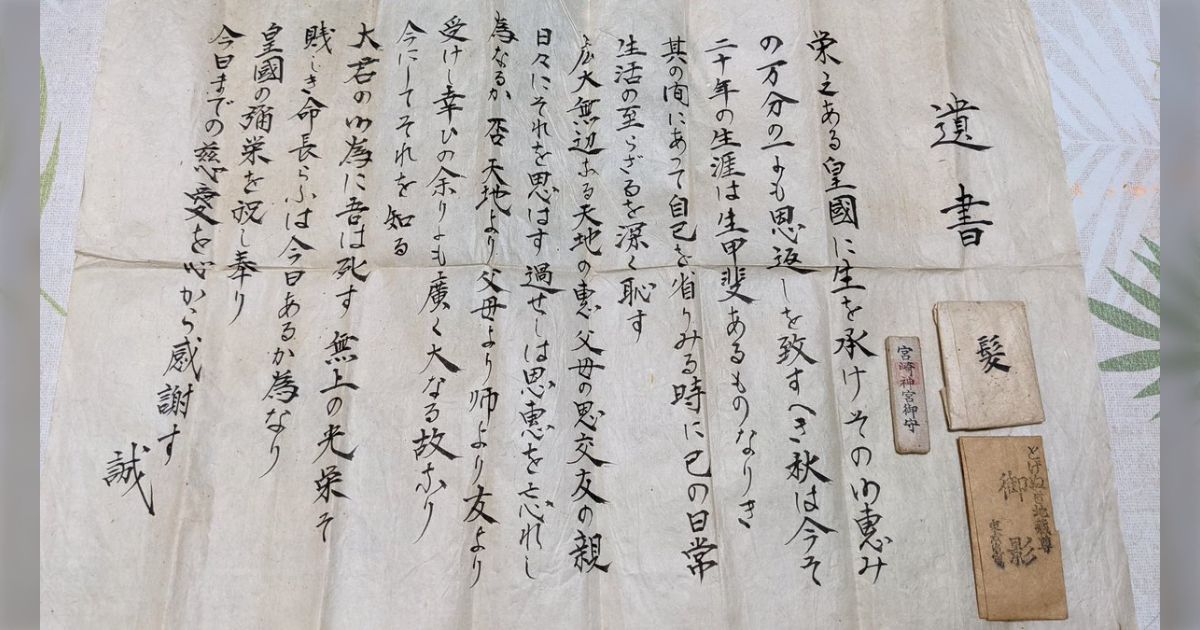 遺書
栄えある皇國に生を承けその御恵み
の万分の一よも思返しを致すへき秋は今そ
二十年の生涯は生甲斐あるものなりき
其の間にあつて自己を省りみる時に己の日常
生活の至らざるを深く恥す
広大無辺なる天地の恵父母の恩交友の親
日々にそれを思はす過せしは恩恵を忘れし
為なるか否天地より父母より師より友より
受けし幸ひの余りよも廣く大なる故なり
今にしてそれを知る
大君の御為に吾は死す無上の光栄そ
賎しき命長らふは今日あるか為なり
皇國の彌栄を祝し奉り
今日までの慈愛を心から感謝す
誠
髪
宮崎神宮御守
とげぬき地蔵尊
御影